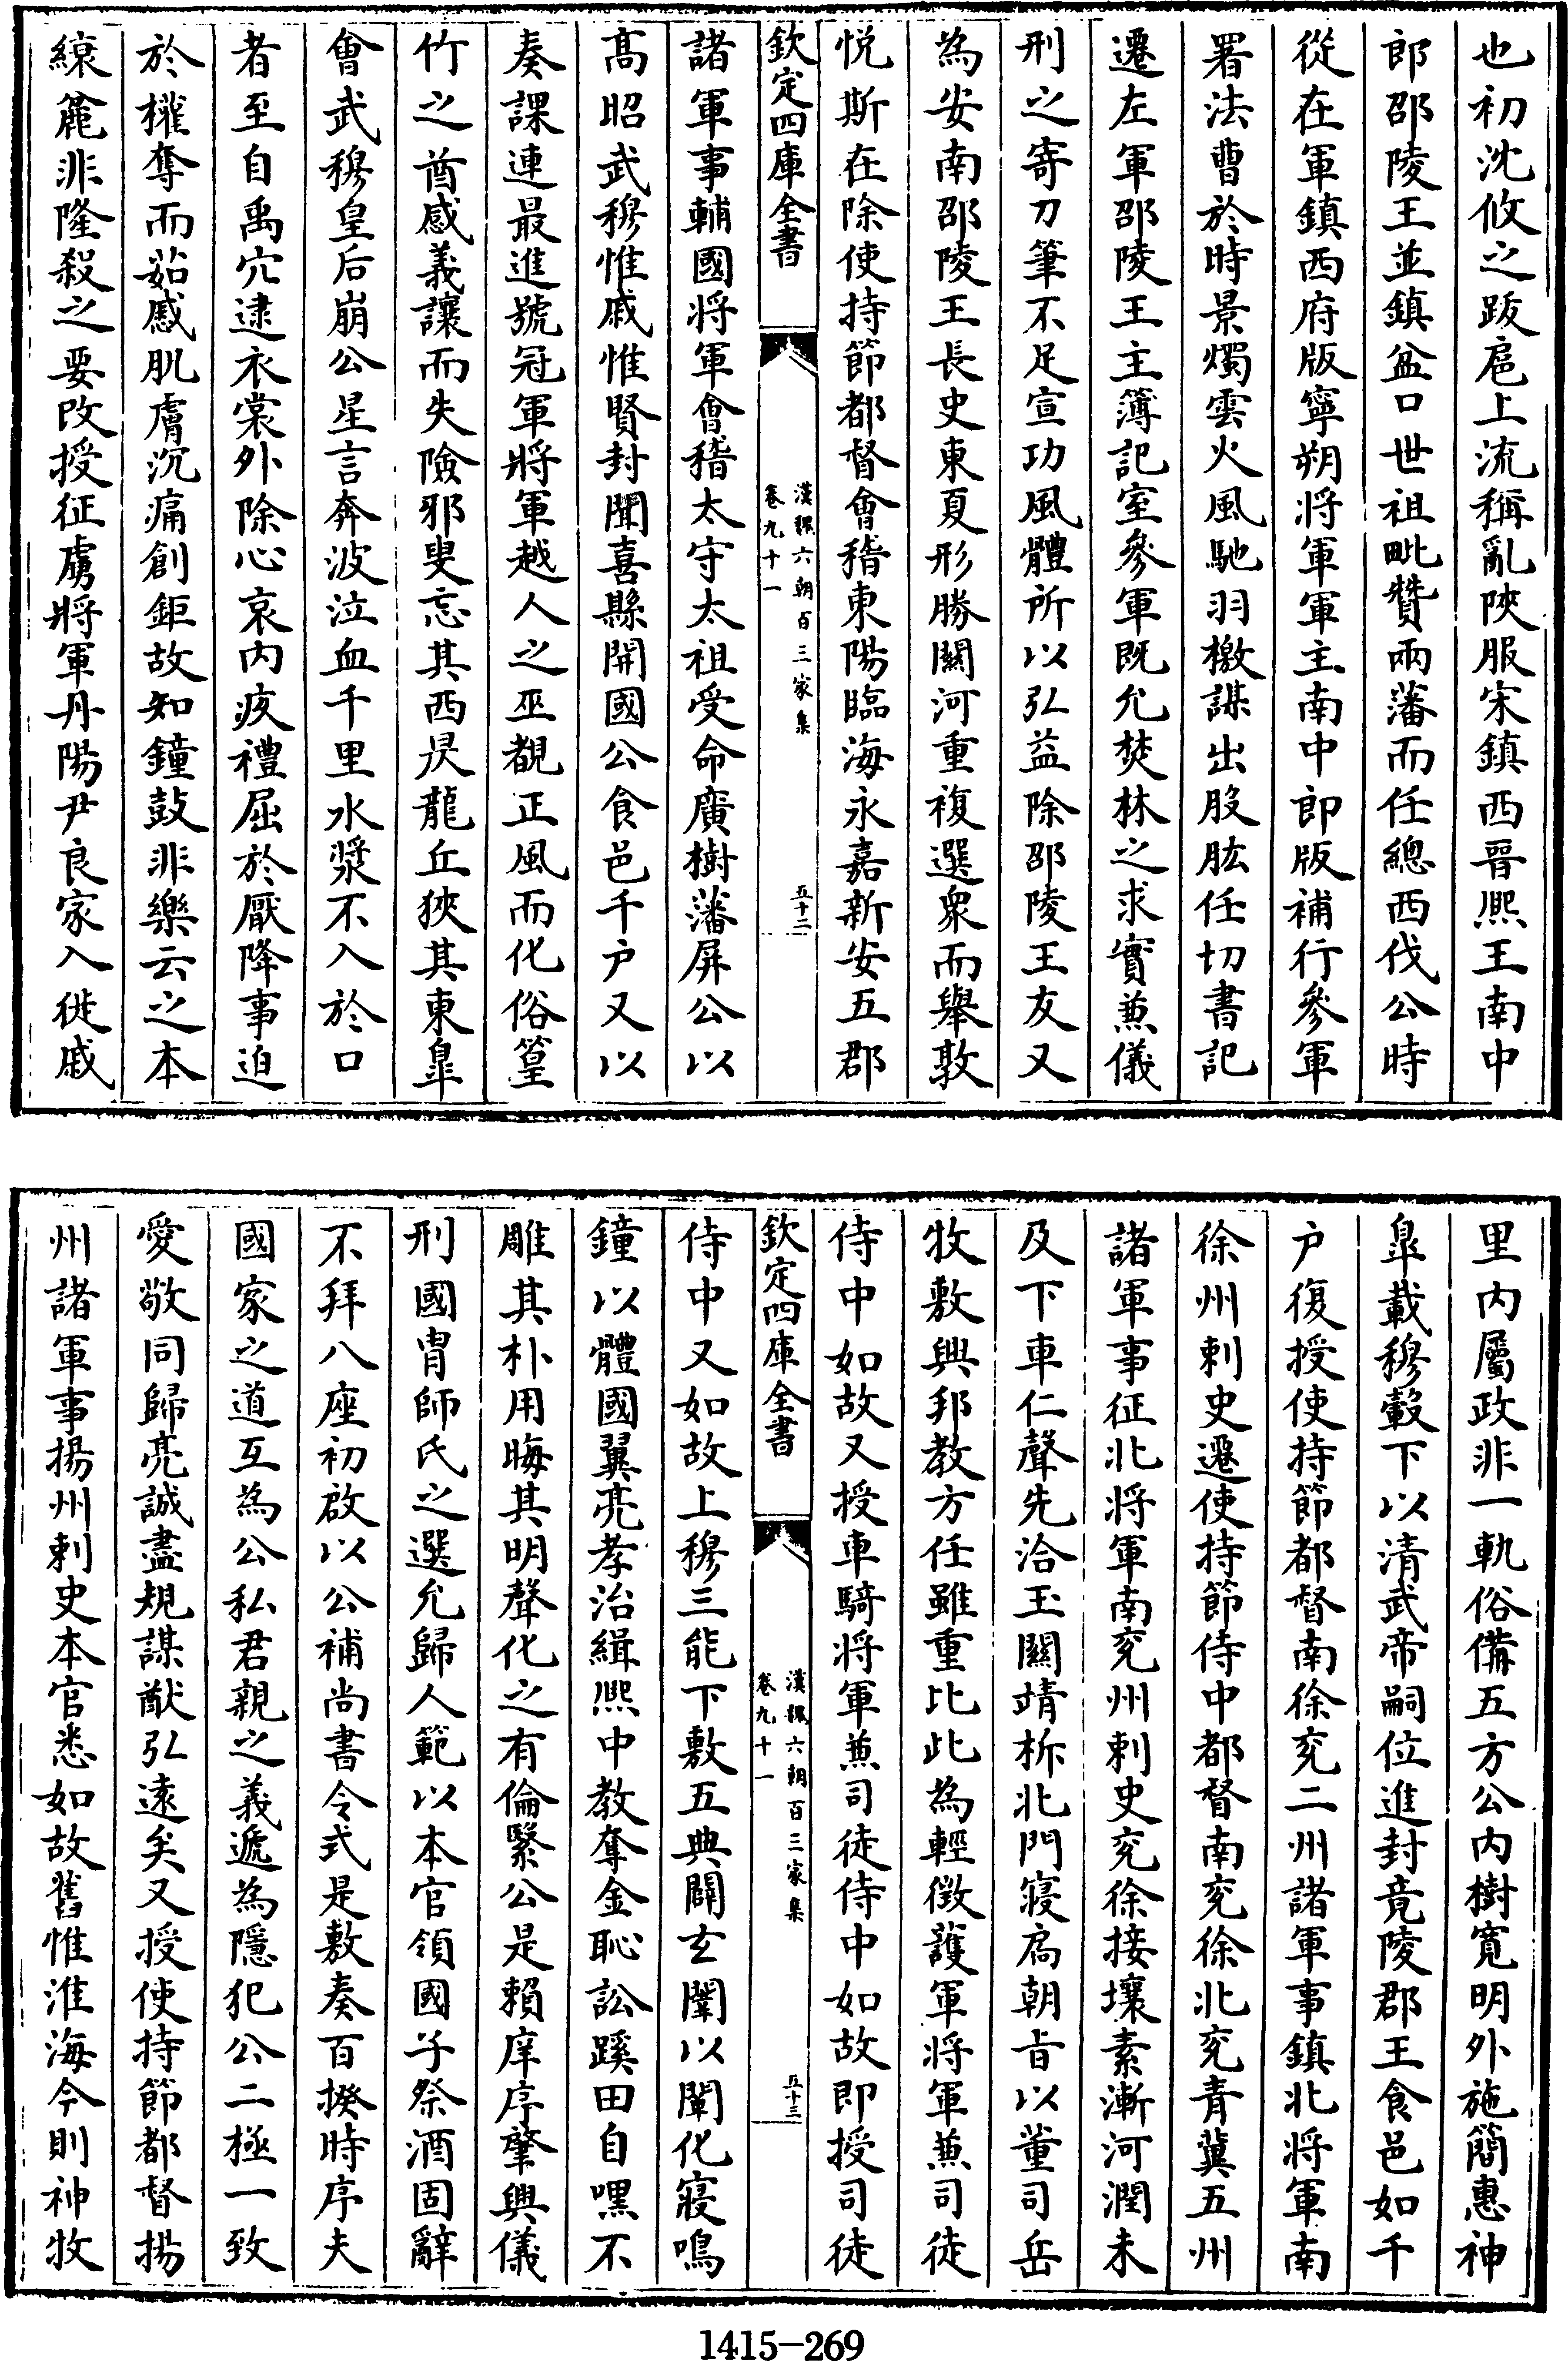 也初沈攸之跋扈上流稱亂陜服宋鎮西晉熙王南中
郎邵陵王並鎮盆口世祖毗贊兩藩而任總西伐公時
從在軍鎮西府版寧朔將軍軍主南中郎版補行參軍
署法曹於時景燭雲火風馳羽檄謀出股肱任切書記
遷左軍邵陵王主簿記室參軍既允焚林之求實兼儀
刑之寄刀筆不足宣功風體所以弘益除邵陵王友又
為安南邵陵王長史東夏形勝關河重複選衆而舉敦
悅斯在除使持節都督會稽東陽臨海永嘉新安五郡
欽定四庫全書
漢魏六朝百三家集
卷九十一
五十二
諸軍事輔國將軍會稽太守太祖受命廣樹藩屏公以
髙昭武穆惟戚惟賢封聞喜縣開國公食邑千户又以
奏課連最進號冠軍將軍越人之巫覩正風而化俗篁
竹之酋感義讓而失險邪叟忘其西昃龍丘狹其東臯
會武穆皇后崩公星言奔波泣血千里水漿不入於口
者至自禹穴逮衣裳外除心哀内疚禮屈於厭降事迫
於權奪而茹慼肌膚沉痛創鉅故知鐘鼓非樂云之本
縗麄非隆殺之要改授征虜將軍丹陽尹良家入徙戚
里内屬政非一軌俗備五方公内樹寛明外施簡惠神
臯載穆轂下以清武帝嗣位進封竟陵郡王食邑如千
户復授使持節都督南徐兗二州諸軍事鎮北將軍南
徐州刺史遷使持節侍中都督南兗徐北兗青冀五州
諸軍事征北將軍南兗州刺史兗徐接壤素漸河潤未
及下車仁聲先洽玉關靖柝北門寢扃朝旨以董司岳
牧敷興邦教方任雖重比此為輕徵護軍將軍兼司徒
侍中如故又授車騎將軍兼司徒侍中如故即授司徒
欽定四庫全書
漢魏六朝百三家集
卷九十一
五十三
侍中又如故上穆三能下敷五典闢玄闈以闡化寢鳴
鐘以體國翼亮孝治緝熙中教奪金恥訟蹊田自嘿不
雕其朴用晦其明聲化之有倫緊公是賴庠序肇興儀
刑國胄師氏之選允歸人範以本官領國子祭酒固辭
不拜八座初啟以公補尚書令式是敷奏百揆時序夫
國家之道互為公私君親之義遞為隱犯公二極一致
愛敬同歸亮誠盡規謀猷弘遠矣又授使持節都督揚
州諸軍事揚州刺史本官悉如故舊惟淮海今則神牧
1415-269